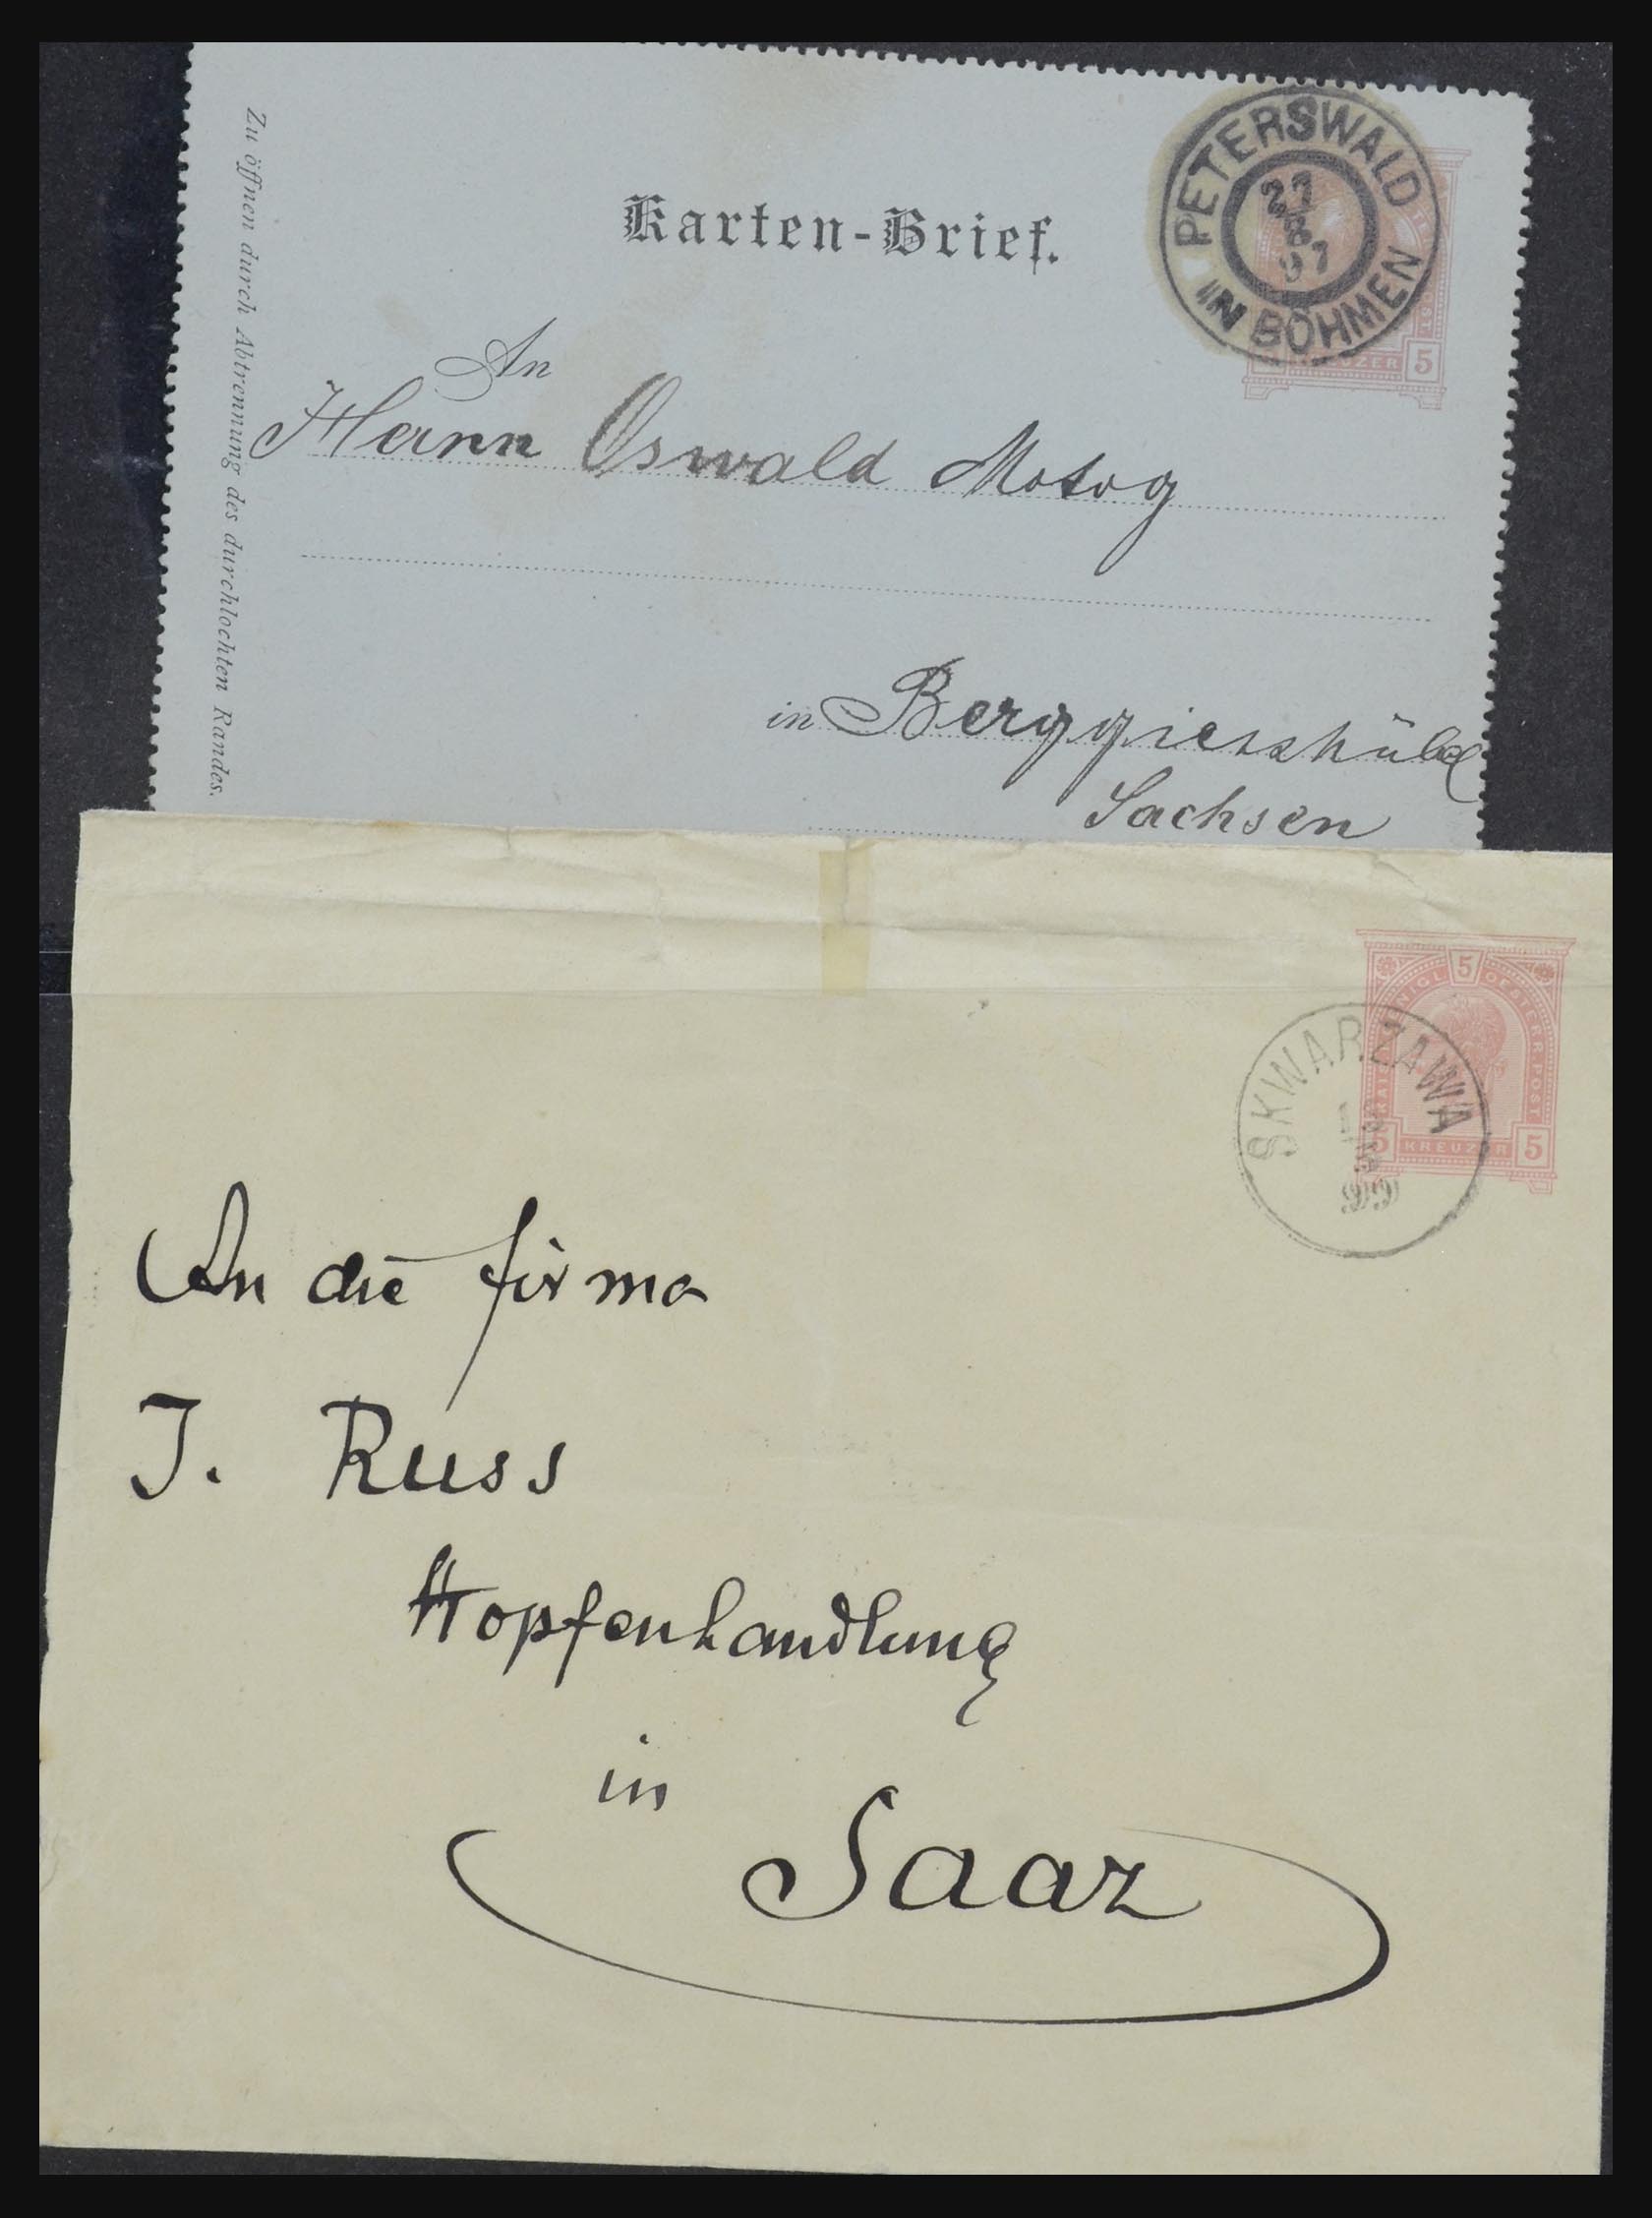 Zu öffnen durch Abtrennung des durchlochten Randes.
Karten-Brief.
PETERSWALD
27
8
97
IN BÖHMEN
KREUZER 5
An
Herrn Oswald Motog
in Berggiesshübel
Sachsen
5
KÖNIGL OESTERR POST
SKWARZAWA
5 KREUZER 5
An die firma
J. Russ
Hopfenhandlung
in
Saaz